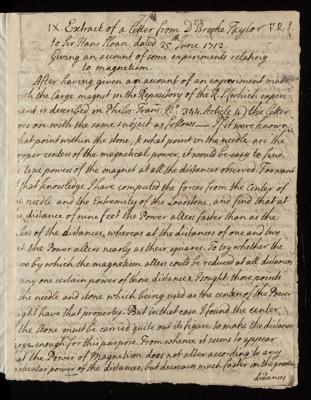 IX. Extract of a Letter from Dr. Brooke Taylor F.R.S.
to Sir Hans Sloan dated 25th June 1712.
Giving an account of some experiments relating
to magnetism.
After having given an account of an experiment made
with the large magnet in the Repository of the R.S. (which exper
ment is described in Philos: Trans: No. 344. Article 4) the Letter
goes on with the same subject as follows — If it were known
that point within the stone, & what point in the needle are the
proper centers of the magnetical power, it would be easy to find
the true powers of the magnet at all the distances observed. For want
of that knowledge I have computed the forces from the Center of
the needle and the Extremity of the Loadstone, and find that at
the distance of nine feet the Power alters faster than as the
cubes of the distances, whereas at the distances of one and two
feet the Power alters nearly as their squares. To try whether the
law by which the magnetism alters could be reduced at all distances
any one certain power of those distances, I sought those points
the needle and stone which being used as the centers of the Power
might have that property. But in that case I found the center
the stone must be carried quite out its figure to make the distances
large enough for this purpose. From whence it seems to appear
that the Power of Magnetism does not alter according to any
particular power of the distances, but decreases much faster in the greater
distances